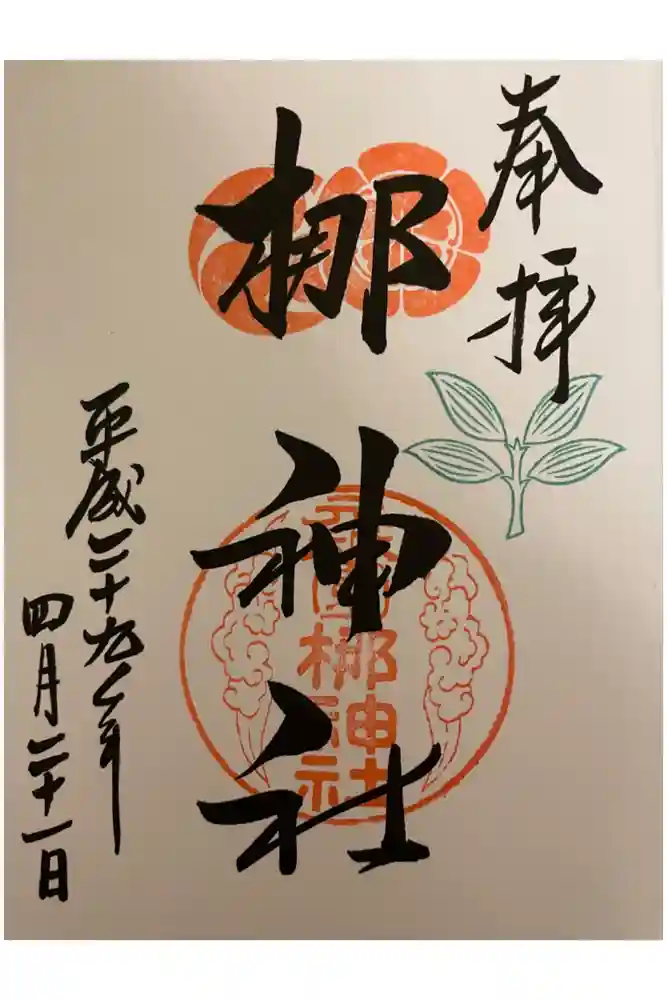 奉拝
梛神社
元祇園梛神社
平成二十九年
四月二十一日